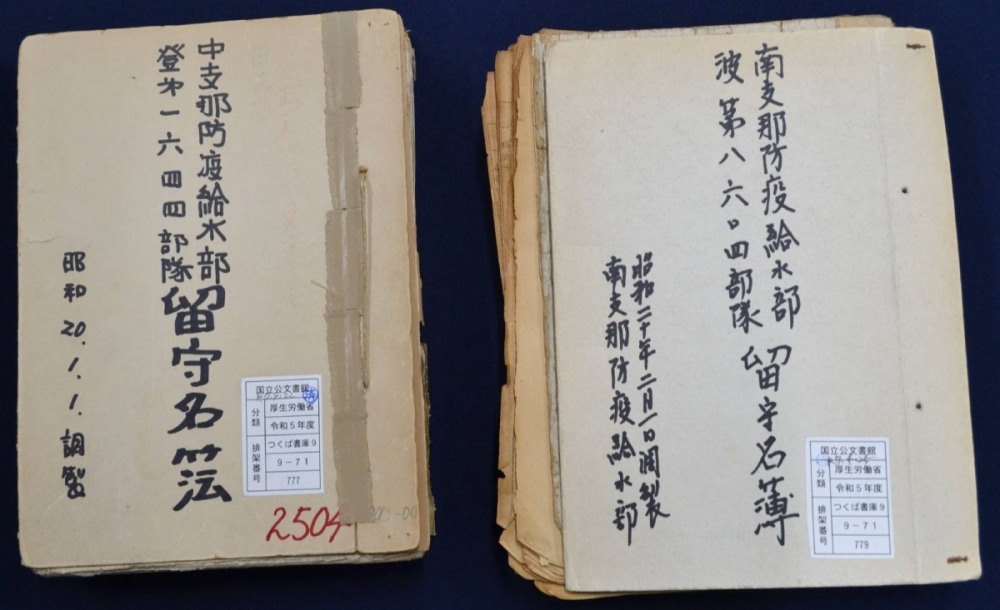 中支那防疫給水部
登第一六四四部隊留守名簿
昭和20.1.1.調製
国立公文書館
分類
厚生労働省
令和5年度
排架番号
つくば書庫9
9-71
777
2504
南支那防疫給水部
波第八六〇四部隊留守名簿
昭和二十年二月一日調製
南支那防疫給水部
国立公文書館
分類
厚生労働省
令和5年度
排架番号
つくば書庫9
9-71
779